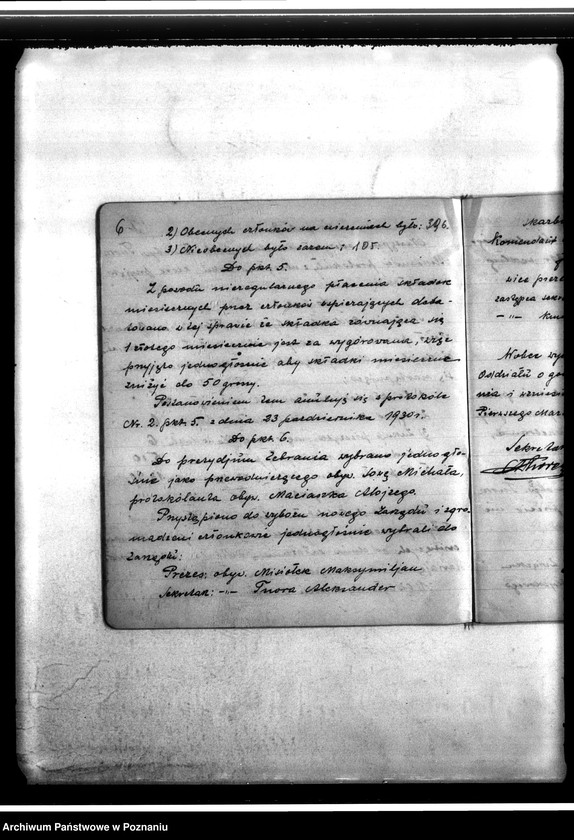 6
2) Obecnych członków na ćwiczeniach było: 396.
3) Nieobecnych było razem: 105.
Do pkt. 5.
Z powodu nieregularnego płacenia składek
miesięcznych przez członków wspierających deba-
towano w tej sprawie że składka równająca się
1 złotego miesięcznie jest za wygórowana, więc
przyjęto jednogłośnie aby składki miesięczne
zniżyć do 50 groszy.
Postanowieniem tem się z protokółe
Nr. 2. pkt. 5. z dnia 23 października 1930 r.
Do pkt. 6.
Do prezydjum Zebrania wybrano jednogło-
śnie jako przewodniczącego obyw. Michała,
protokólanta obyw. Maciaszka Alojzego.
Przystąpiono do wyboru nowego Zarządu i zgro-
madzeni członkowie jednogłośnie wybrali do
Zarządu:
Prezes: obyw. Misiołek Maksymiljan
Sekretarz: -„- Twora Aleksander
skarb
Komendant
wice preze
zastępca sekr
-„-
Wobec wy
Oddziału o go
nia i wznies
Pierwszego Mar
Sekretar
Archiwum Państwowe w Poznaniu